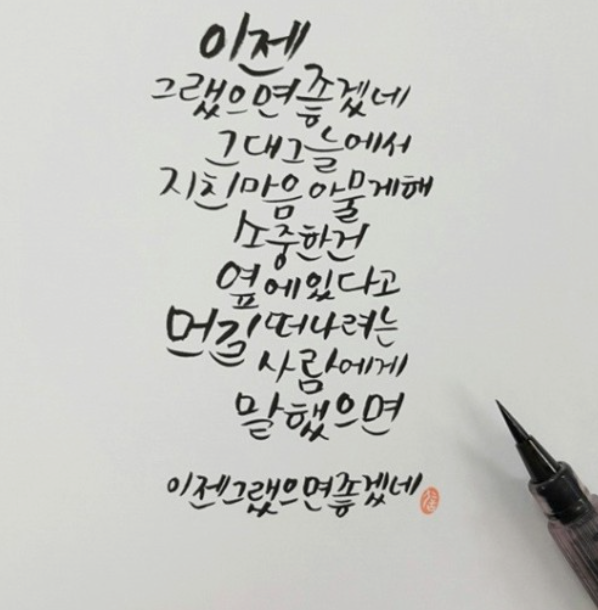 이젠
그랬으면좋겠네
그대그늘에서
지친마음아물게해
소중한건
옆에있다고
먼길떠나려는
사람에게
말했으면
이젠그랬으면좋겠네